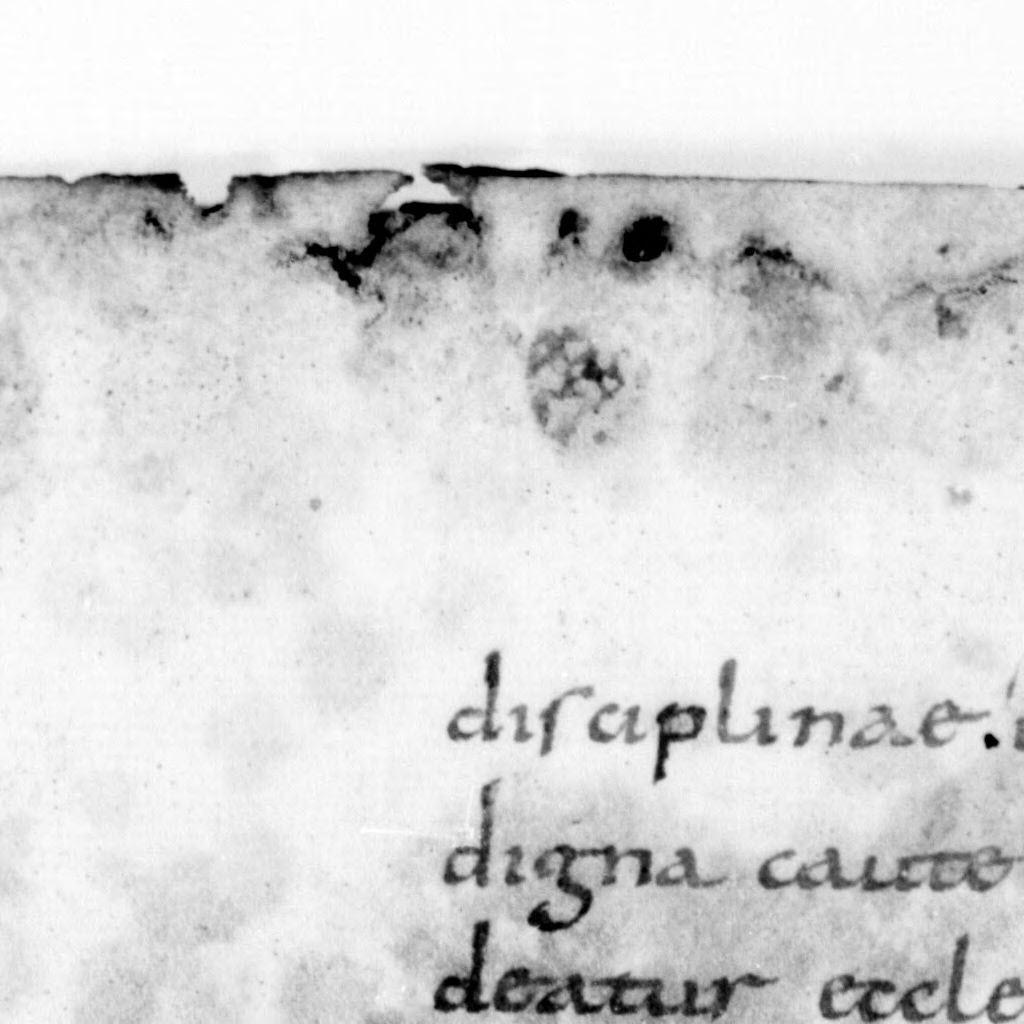 disciplinae.
digna caute
deatur eccle